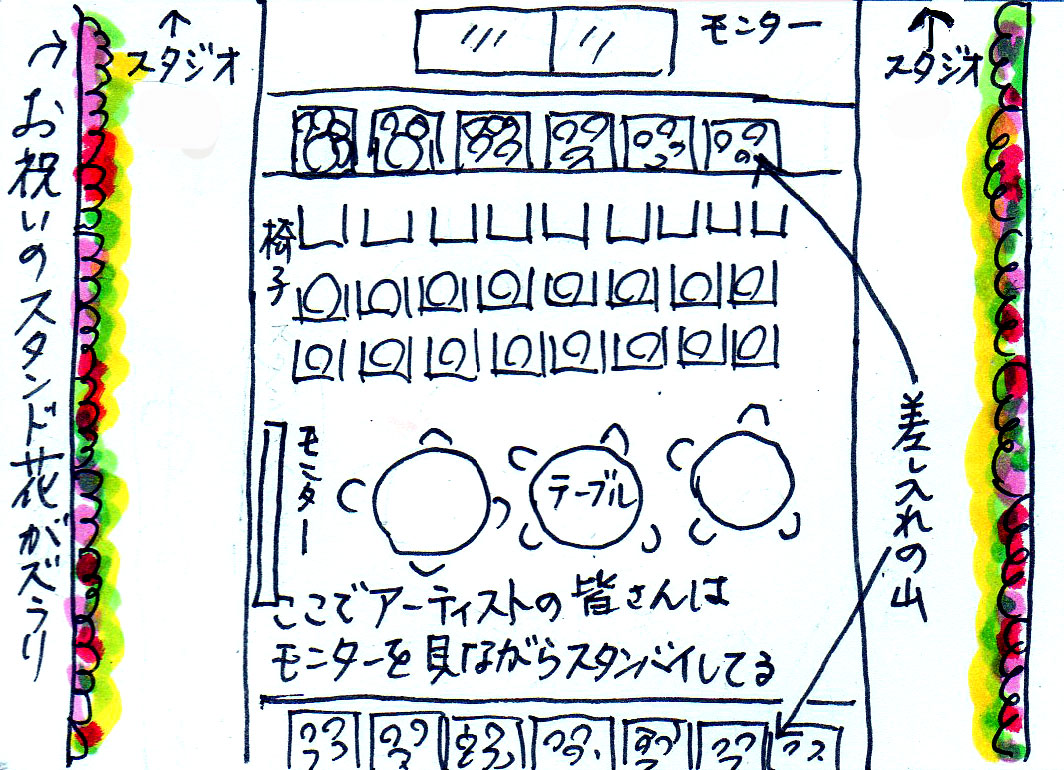 ↑
スタジオ
モニター
↑
スタジオ
→お祝いのスタンド花がズラリ
椅子
モニター
テーブル
差し入れの山
ここでアーティストの皆さんは
モニターを見ながらスタンバイしてる